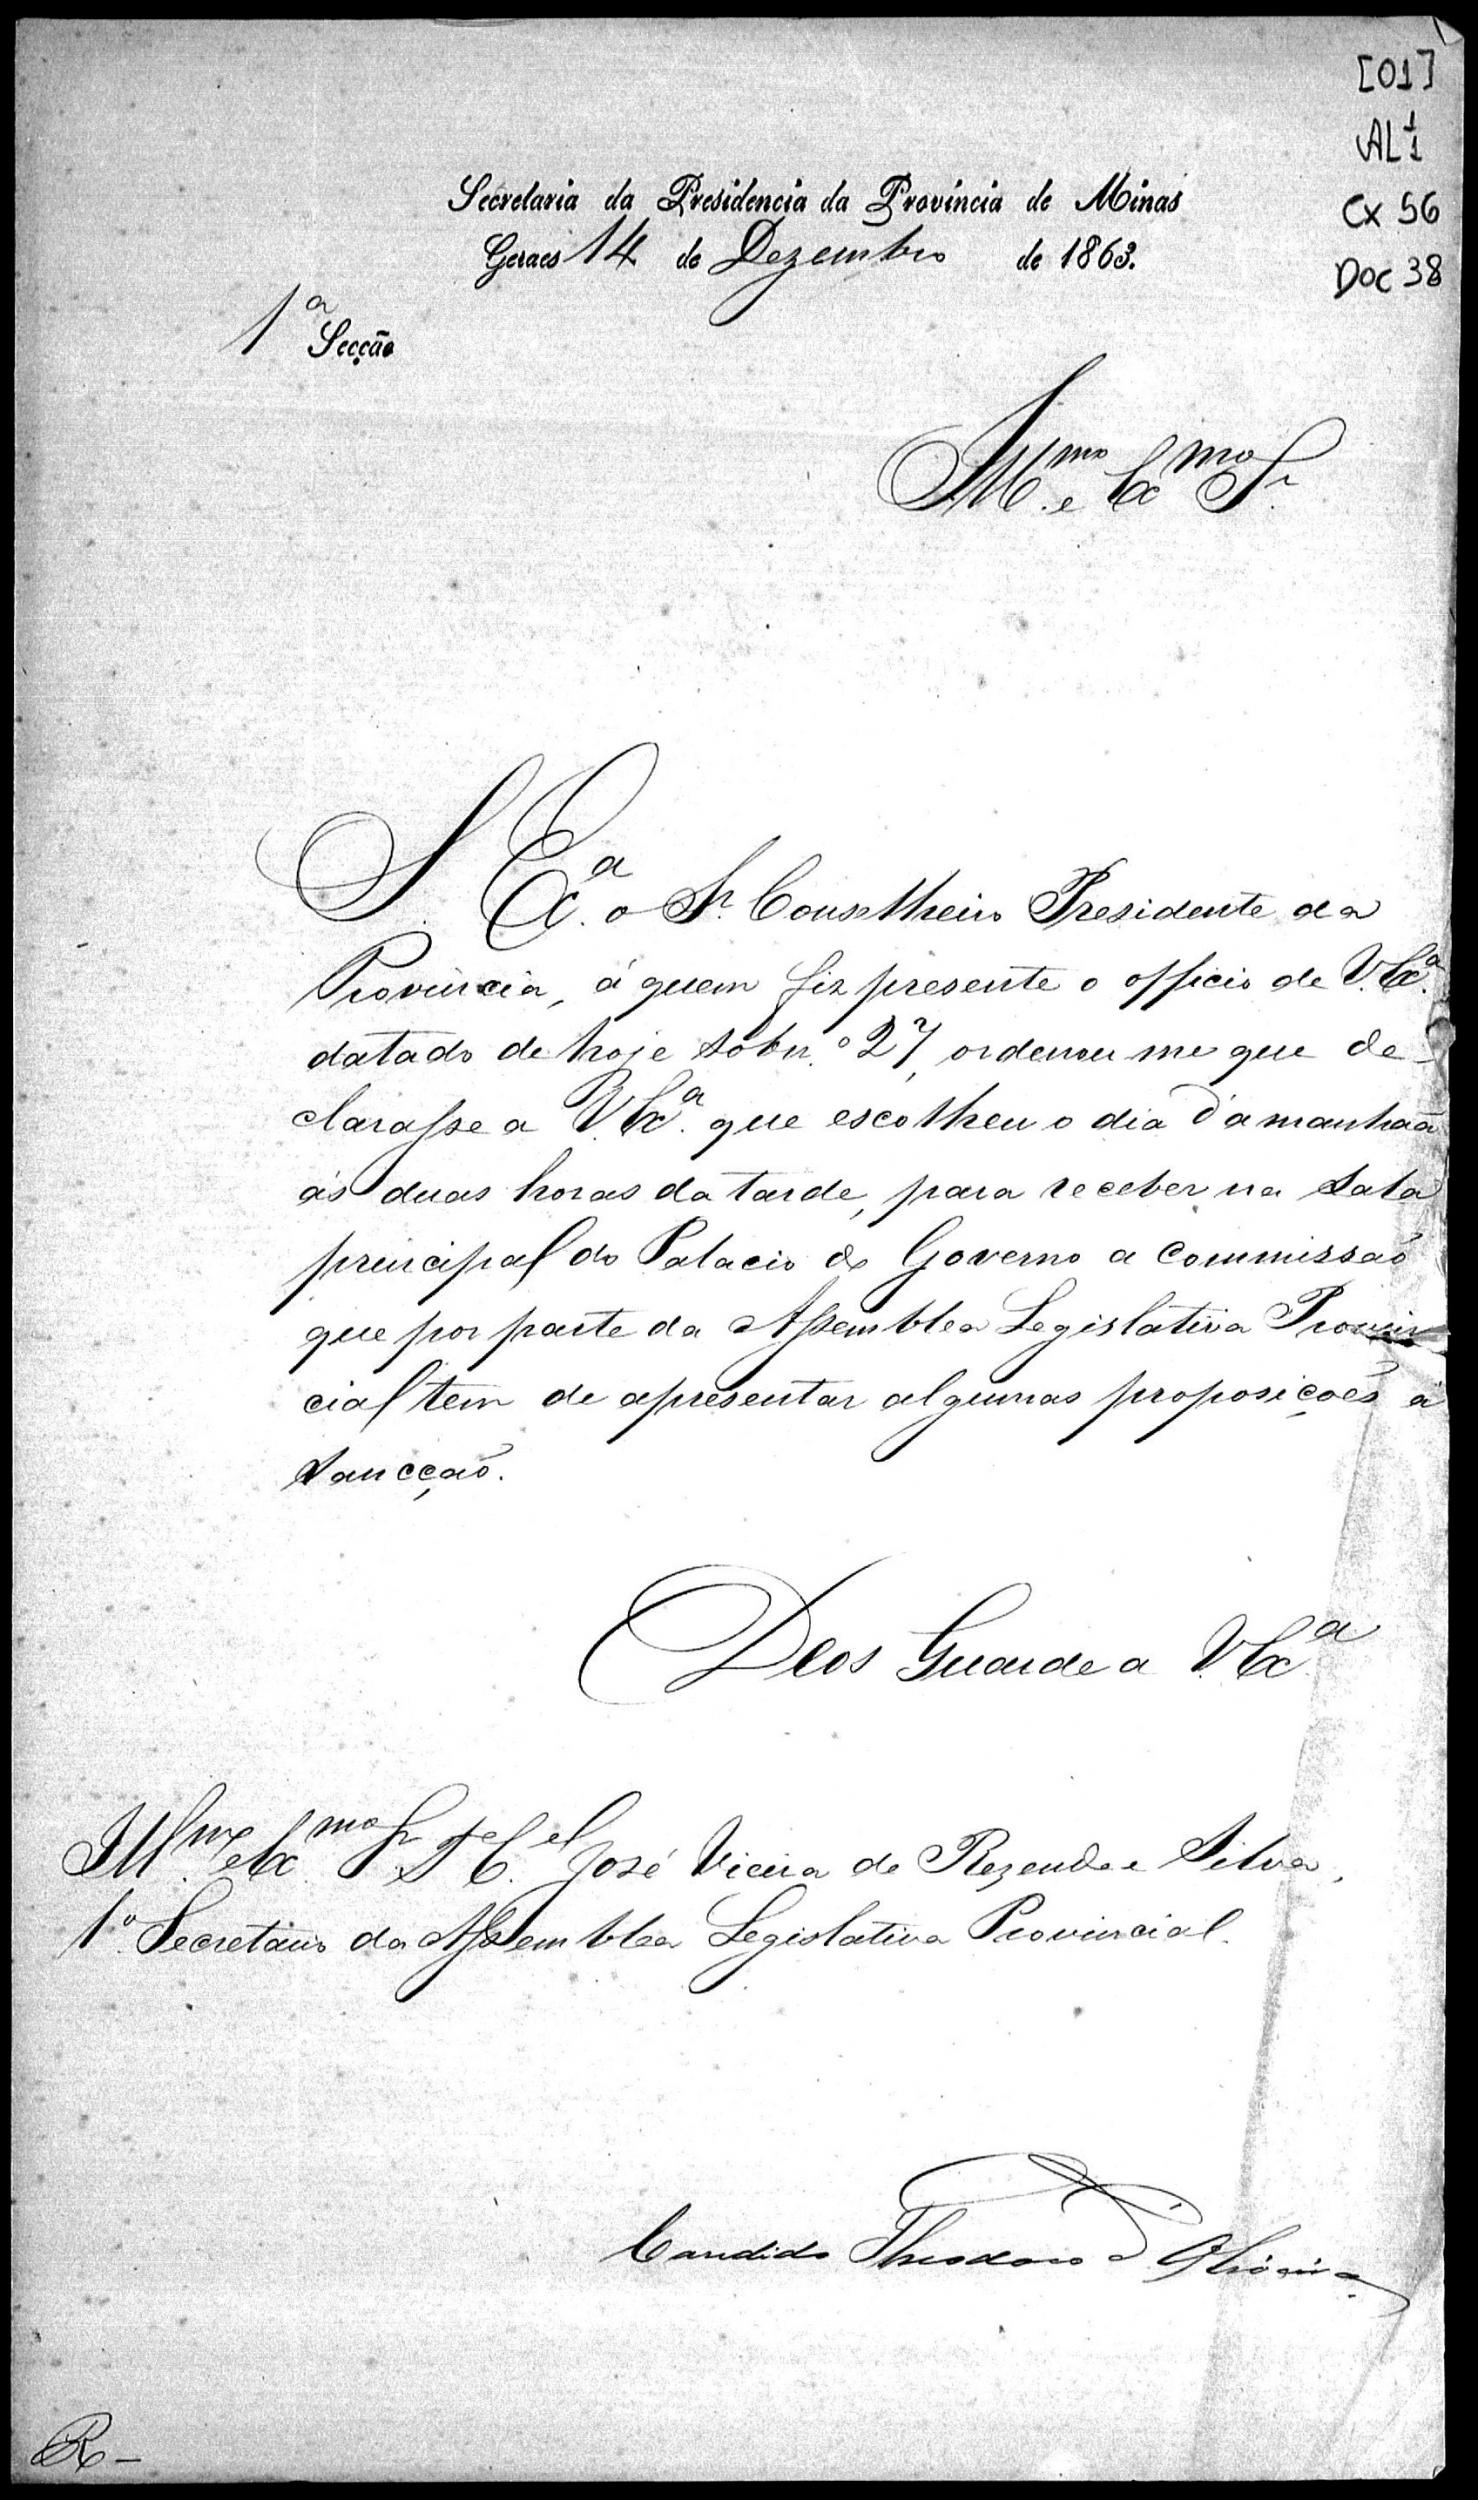 [01]
AL 1
1
Cx 56
Doc 38
Secretaria da Presidencia da Provincia de Minas
Geraes 14 de Dezembro de 1863.
1ª Secção
Illmo. e Exmo Sr.
S. Exª. o Sr. Conselheiro Presidente da
Provincia, á quem fiz presente o officio de V. Exª.
datado de hoje sob n.º 27, ordenou me que de-
clarasse a V. Exª. que escolheu o dia d'amanhaã
ás duas horas da tarde, para receber na Sala
principal do Palacio do Governo a Commissaõ
que por parte da Assemblea Legislativa Provin
cial tem de apresentar algumas proposiçoẽs á
Sancçaõ.
Deos Guarde a V. Exª
Illmo. e Exmo Sr. Te. Cel. José Vieira de Rezende e Silva,
1º. Secretario da Assemblea Legislativa Provincial.
Candido Theodoro d'Oliveira
R–